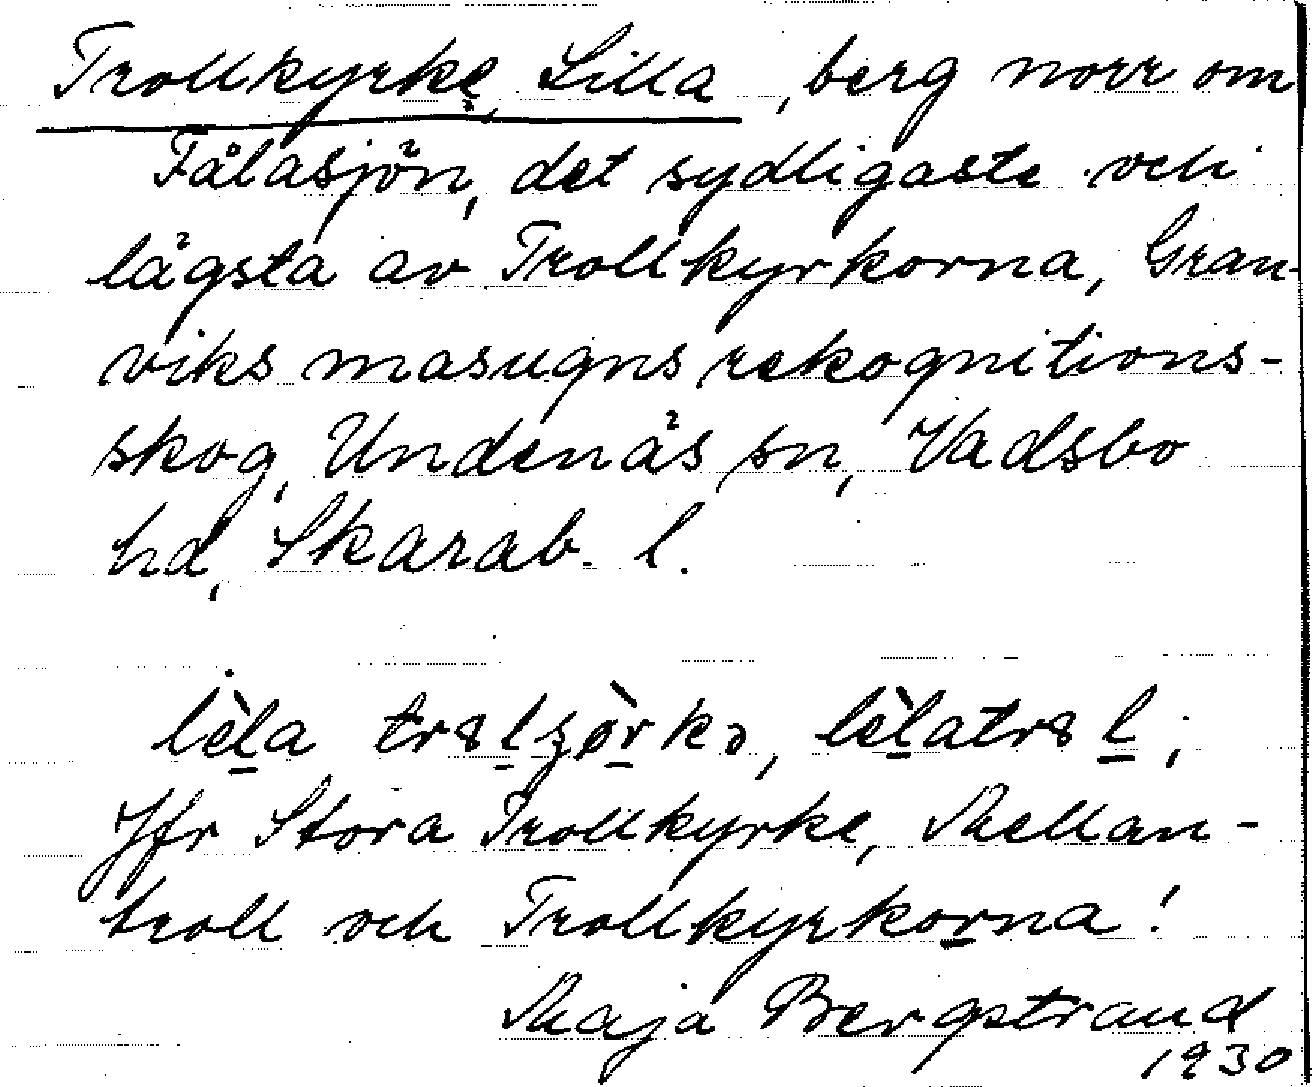 Trollkyrke, Lilla, berg norr om
Fålasjön, det sydligaste och
lägsta av Trollkyrkorna, Gran-
viks masugns rekognitions-
skog, Undenäs sn, Vadsbo
hd, Skarab. l.
lèla
Jfr Stora Trollkyrke, Mellan-
troll och Trollkyrkorna!
Maja Bergstrand
1930